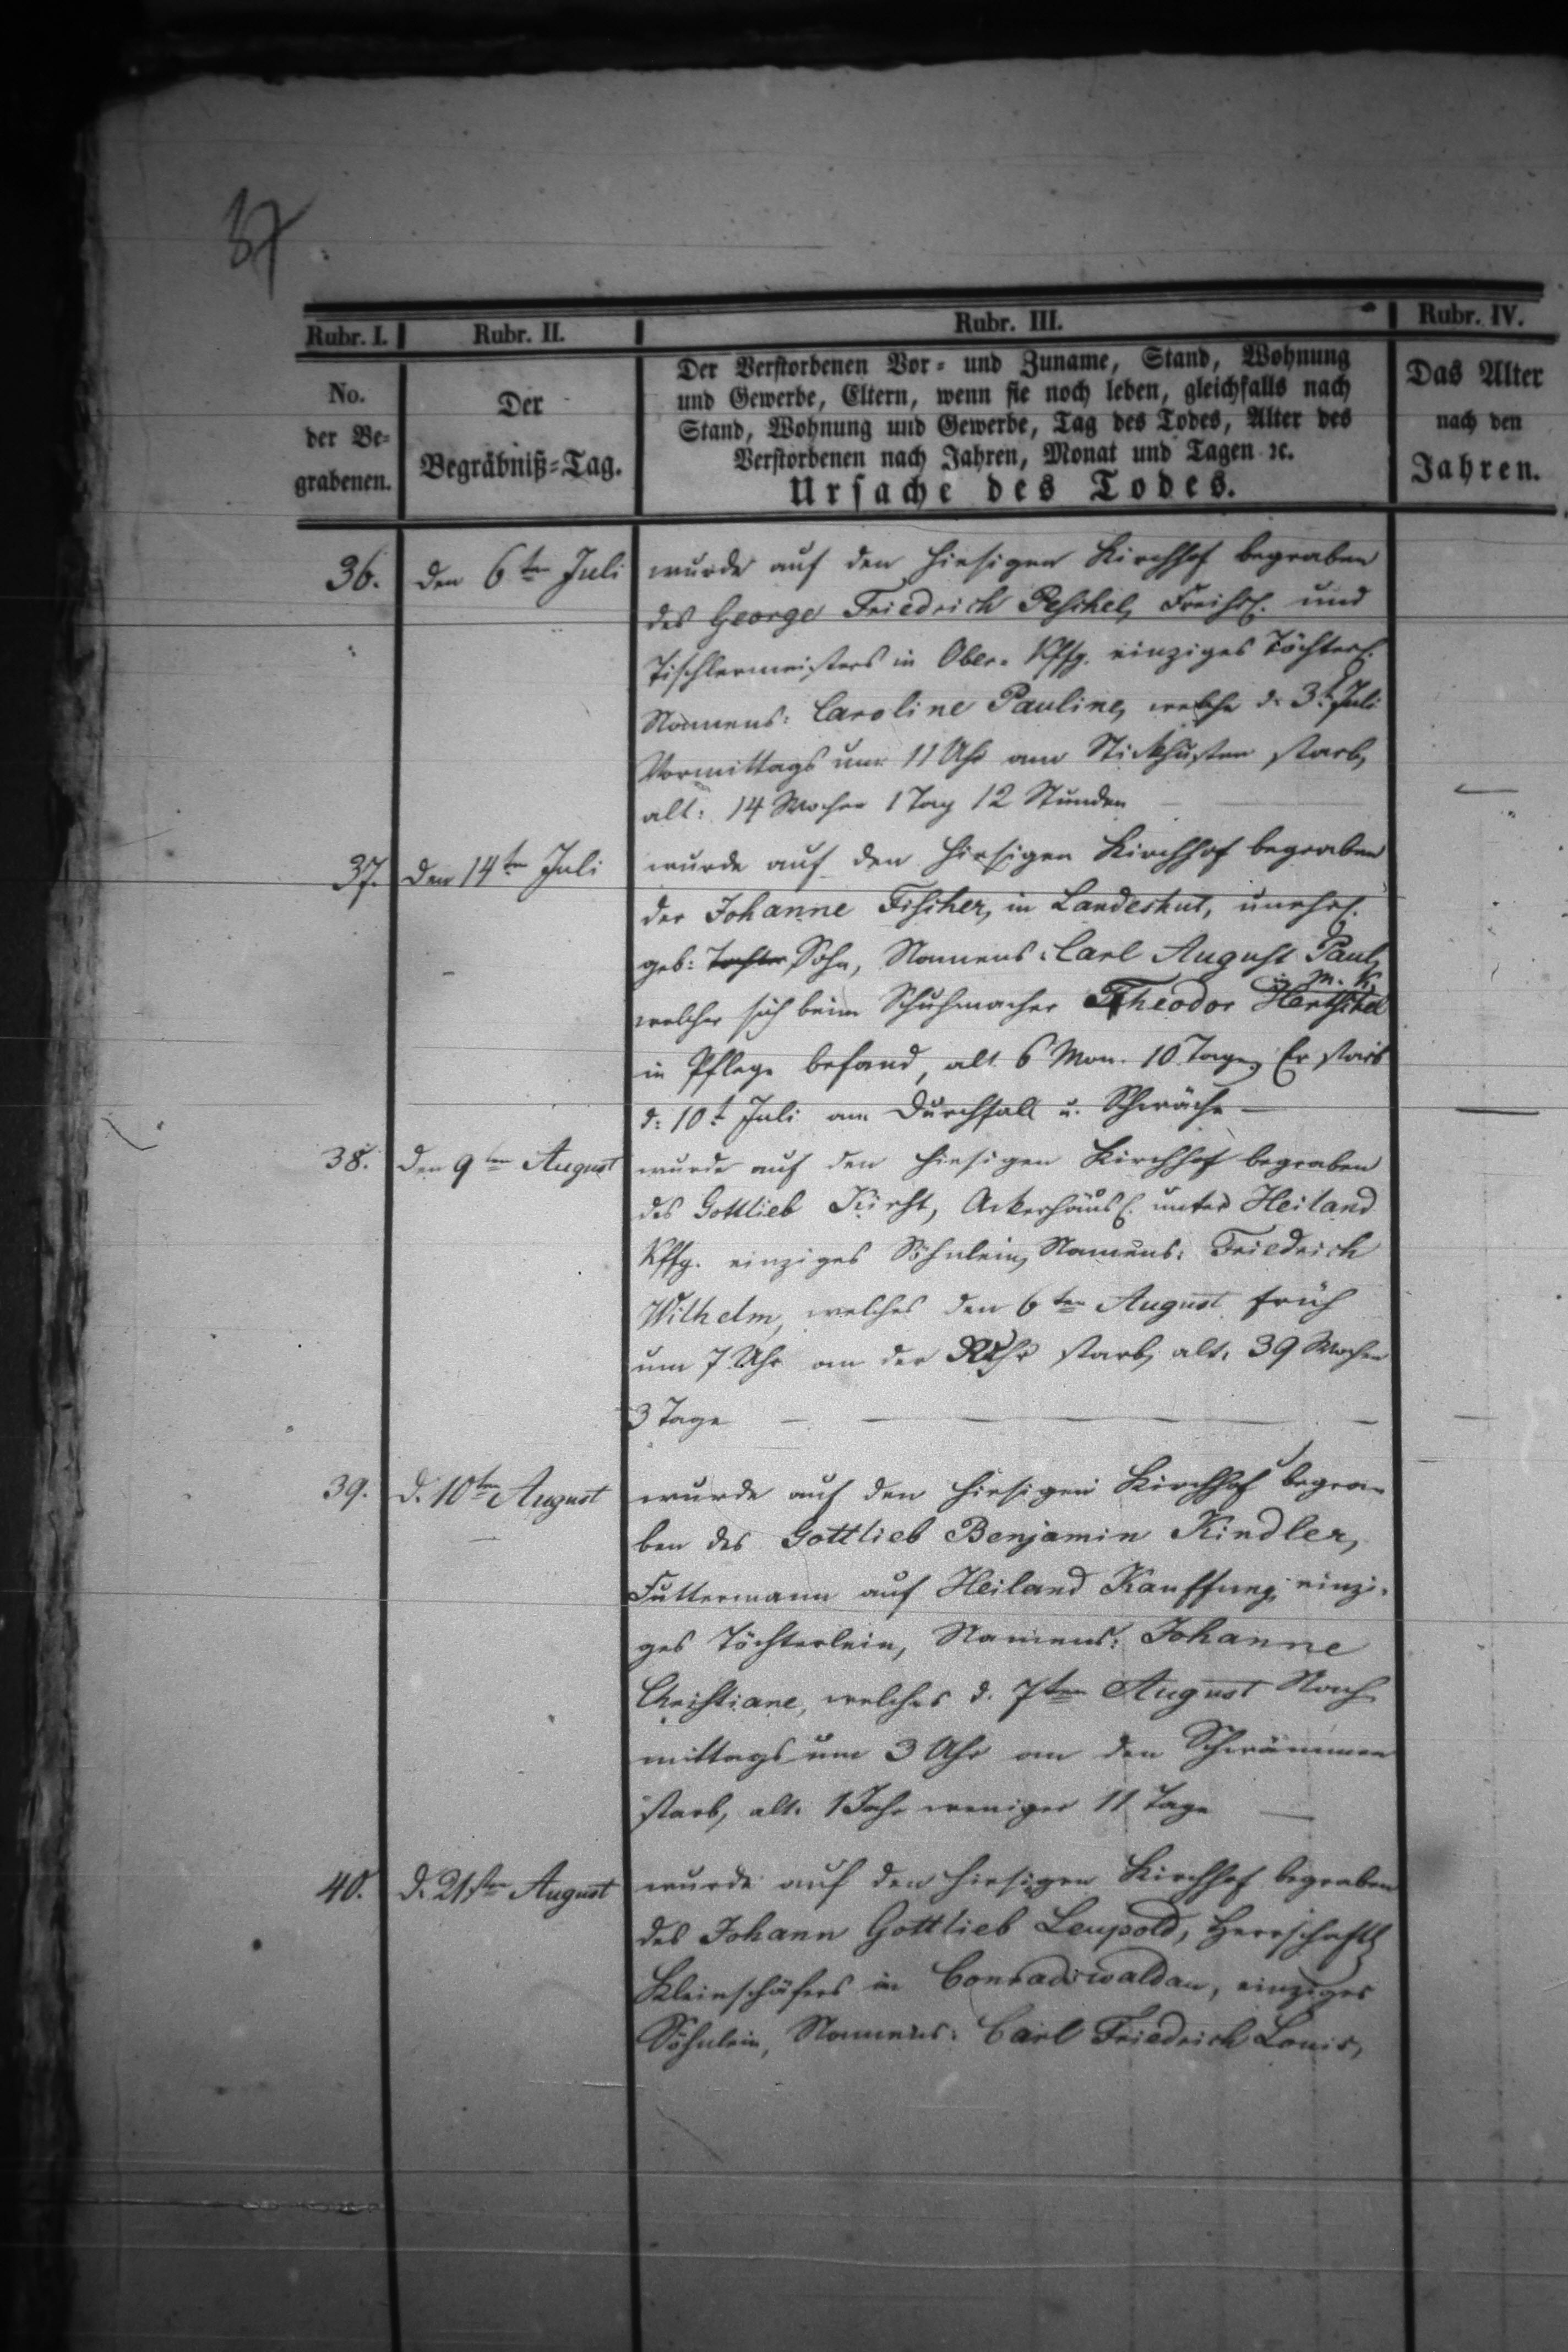 37
Rubr. I. Rubr. II. Rubr. III. Rubr. IV.
No.
der Be-
grabenen.
Der
Begräbniß-Tag.
Der Verstorbenen Vor- und Zuname, Stand, Wohnung
und Gewerbe, Eltern, wenn sie noch leben, gleichfalls nach
Stand, Wohnung und Gewerbe, Tag des Todes, Alter des
Verstorbenen nach Jahren, Monat und Tagen ꝛc.
Ursache des Todes.
Das Alter
nach den
Jahren.
36. den 6ten Juli wurde auf den hiesigen Kirchhof begraben
des George Friedrich Peschel, Freihsl. und
Tischlermeisters in Ober- Kffg. einziges Töchterl.
Namens: Caroline Pauline, welche d. 3t. Juli
Vormittags um 11 Uhr am Stickhusten starb,
alt: 14 Wochen 1 Tag 12 Stunden
37. Den 14ten Juli wurde auf den hiesigen Kirchhof begraben
der Johanne Fischer, in Landeshut, unehel.
geb: Tochter Sohn, Namens: Carl August Paul,
in M. K.
welcher sich beim Schuhmacher Theodor Hentschel
in Pflege befand, alt 6 Mon. 10 Tage, Er starb
d: 10t Juli am Durchfall u. Schwäche —
38. Den 9ten August wurde auf den hiesigen Kirchhof begraben
des Gottlieb Kircht, Ackerhäusl. unter Heiland
Kffg. einziges Söhnlein, Namens: Friedrich
Wilhelm, welches den 6ten August früh
um 7 Uhr an der Ruhr starb, alt: 39 Wochen
3 Tage
39. d. 10ten August wurde auf den hiesigen Kirchhof begra-
ben des Gottlieb Benjamin Kindler,
Futtermann auf Heiland Kauffung, einzi-
ges Töchterlein, Namens: Johanne
Christiane, welches d. 7ten August Nach
mittags um 3 Uhr an den Schwämmen
starb, alt: 1 Jahr weniger 11 Tage —
40. d. 21sten August wurde auf den hiesigen Kirchhof begraben
des Johann Gottlieb Leupold, Herrschaftl.
Kleinschäfers in Conradswaldau, einziges
Söhnlein, Namens: Carl Friedrich Louis,